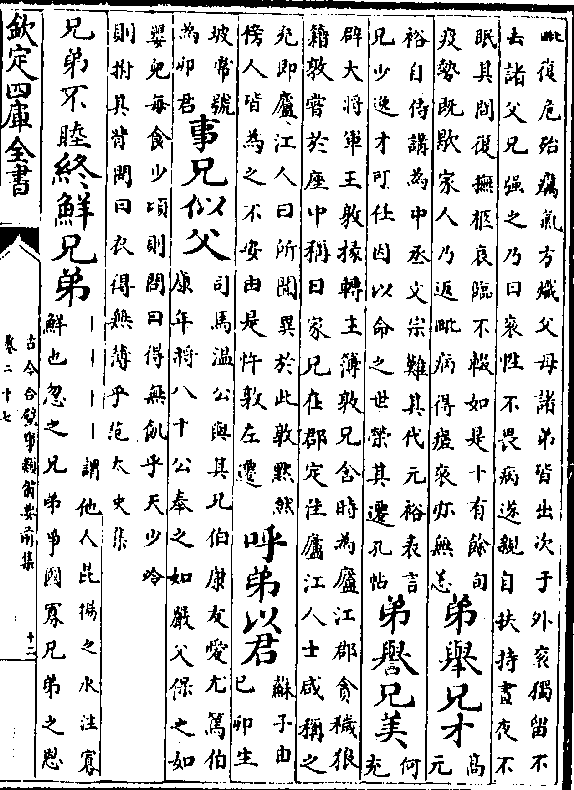 毗復危殆癘氣方熾父母諸弟皆出次于外裒獨留不
去諸父兄强之乃曰裒性不畏病遂親自扶持晝夜不
眠其間復撫柩哀臨不輟如是十有餘旬
疫勢既歇家人乃返毗病得瘥裒亦無恙
弟舉兄才
高
元
裕自侍講為中丞文宗難其代元裕表言
兄少逸才可任因以命之世榮其遷孔帖
弟譽兄美
何
充
辟大將軍王敦掾轉主簿敦兄含時為廬江郡貪穢狼
籍敦嘗於座中稱曰家兄在郡定佳廬江人士咸稱之
充即廬江人曰所聞異於此敦黙然
傍人皆為之不安由是忤敦左遷
呼弟以君
蘇子由
己卯生
坡常號
為卯君
事兄似父
司馬温公與其兄伯康友愛尤篤伯
康年將八十公奉之如嚴父保之如
嬰兒每食少頃則問曰得無飢乎天少冷
則拊其背問曰衣得無薄乎范太史集
兄弟不睦終鮮兄弟
｜｜｜｜謂他人昆揚之水注寡
鮮也忽之兄弟爭國寡兄弟之恩
欽定四庫全書
古今合璧事類備要前集
卷二十七
十二